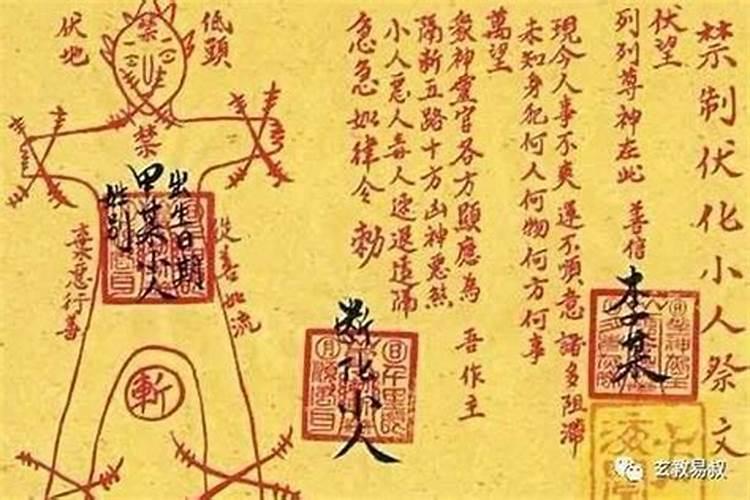 禁制伏化小人祭文
伏望
列列尊神在此 善信 李某
現今人事不爽運不順意諸多阻滯
未知身犯何人何物何方何事
萬望
眾神靈官各方顯應為 吾作主
隔斷五路十方凶神惡煞
小人惡人毒人速退遠隔
急急如律令 勅
斷化小人
低頭
禁
伏地
禁
出生日期
甲某小人
性别
從善如流
棄惡行善
斬
玄教易叔